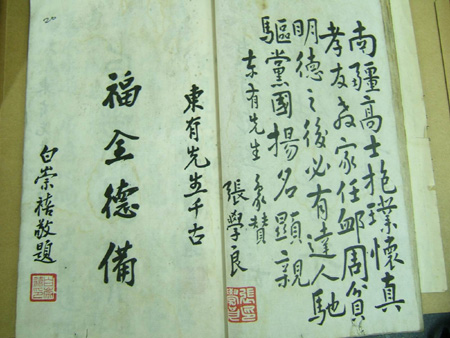 南疆高士抱璞懷真
孝友家任卹周貧
明德之後必有達人馳
驅黨國揚名顯親
東有先生象贊
張學良
東有先生千古
福全德備
白崇禧敬題